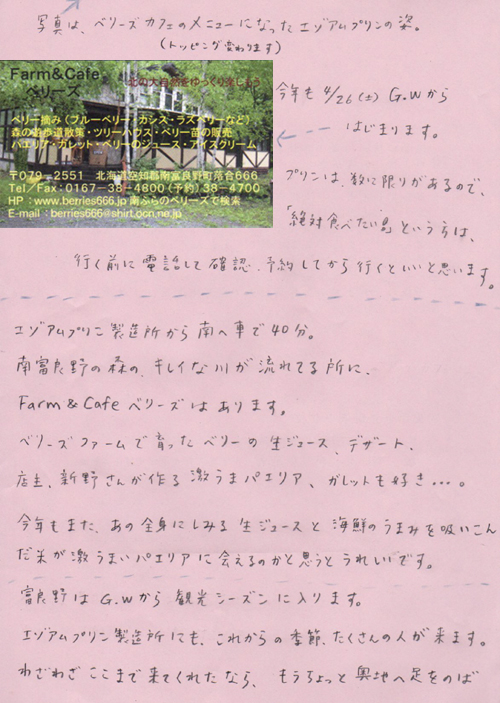 写真は、ベリーズカフェのメニューになったエゾアムプリンの姿。
(トッピング変わります)
Farm&Cafe
ベリーズ
北の大自然をゆっくり楽しもう
ベリー摘み(ブルーベリー・カシス・ラズベリーなど)
森の遊歩道散策・ツリーハウス・ベリー苗の販売
パエリア・ガレット・ベリーのジュース・アイスクリーム
〒079-2551 北海道空知郡南富良野町落合666
Tel/Fax:0167-38-4800(予約)38-4700
HP:www.berries666.jp 南ふらのベリーズで検索
E-mail:berries666@shirt.ocn.ne.jp
今年も4/26(土)G.Wから
はじまります。
プリンは、数に限りがあるので、
「絶対食べたい!!」という方は、
行く前に電話して確認、予約してから行くといいと思います。
エゾアムプリン製造所から南へ車で40分。
南富良野の森の、キレイな川が流れてる所に、
Farm&Cafeベリーズはあります。
ベリーズファームで育ったベリーの生ジュース、デザート、
店主、新野さんが作る激うまパエリア、ガレットも好き…。
今年もまた、あの全身にしみる生ジュースと海鮮のうまみを吸いこん
だ米が激うまいパエリアに会えるのかと思うとうれしいです。
富良野はG.Wから観光シーズンに入ります。
エゾアムプリン製造所にも、これからの季節、たくさんの人が来ます。
わざわざここまで来てくれたなら、もうちょっと奥地へ足をのば